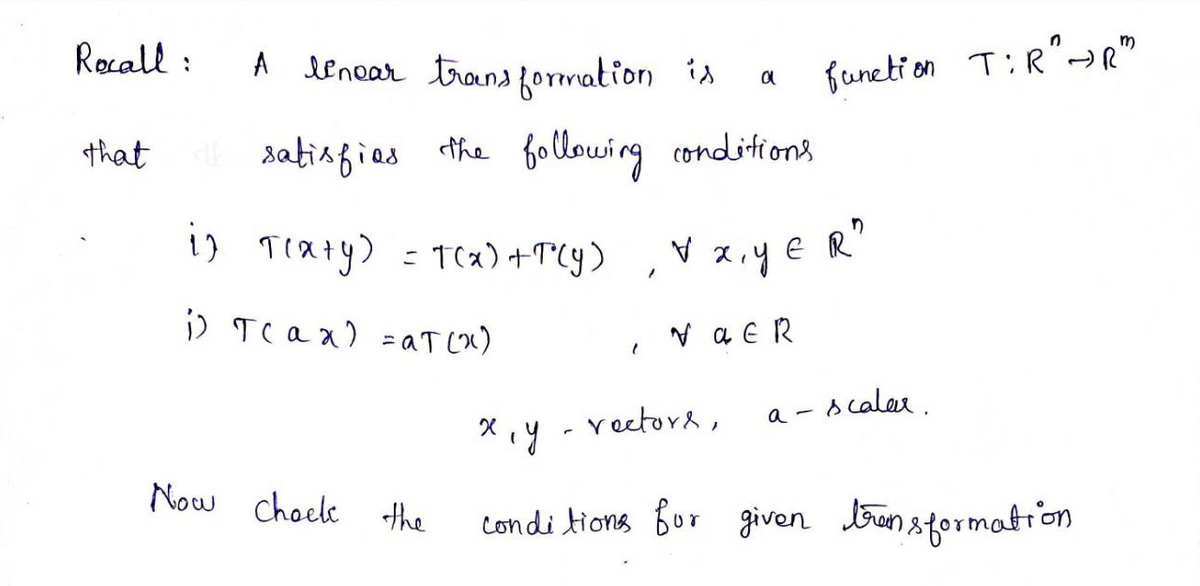 Recall : A linear transformation is a function T : Rⁿ → Rᵐ
that satisfies the following conditions
i) T(x+y) = T(x) + T(y) , ∀ x, y ∈ Rⁿ
i) T(ax) = aT(x) , ∀ a ∈ R
x, y - vectors, a - scalar.
Now check the conditions for given transformation